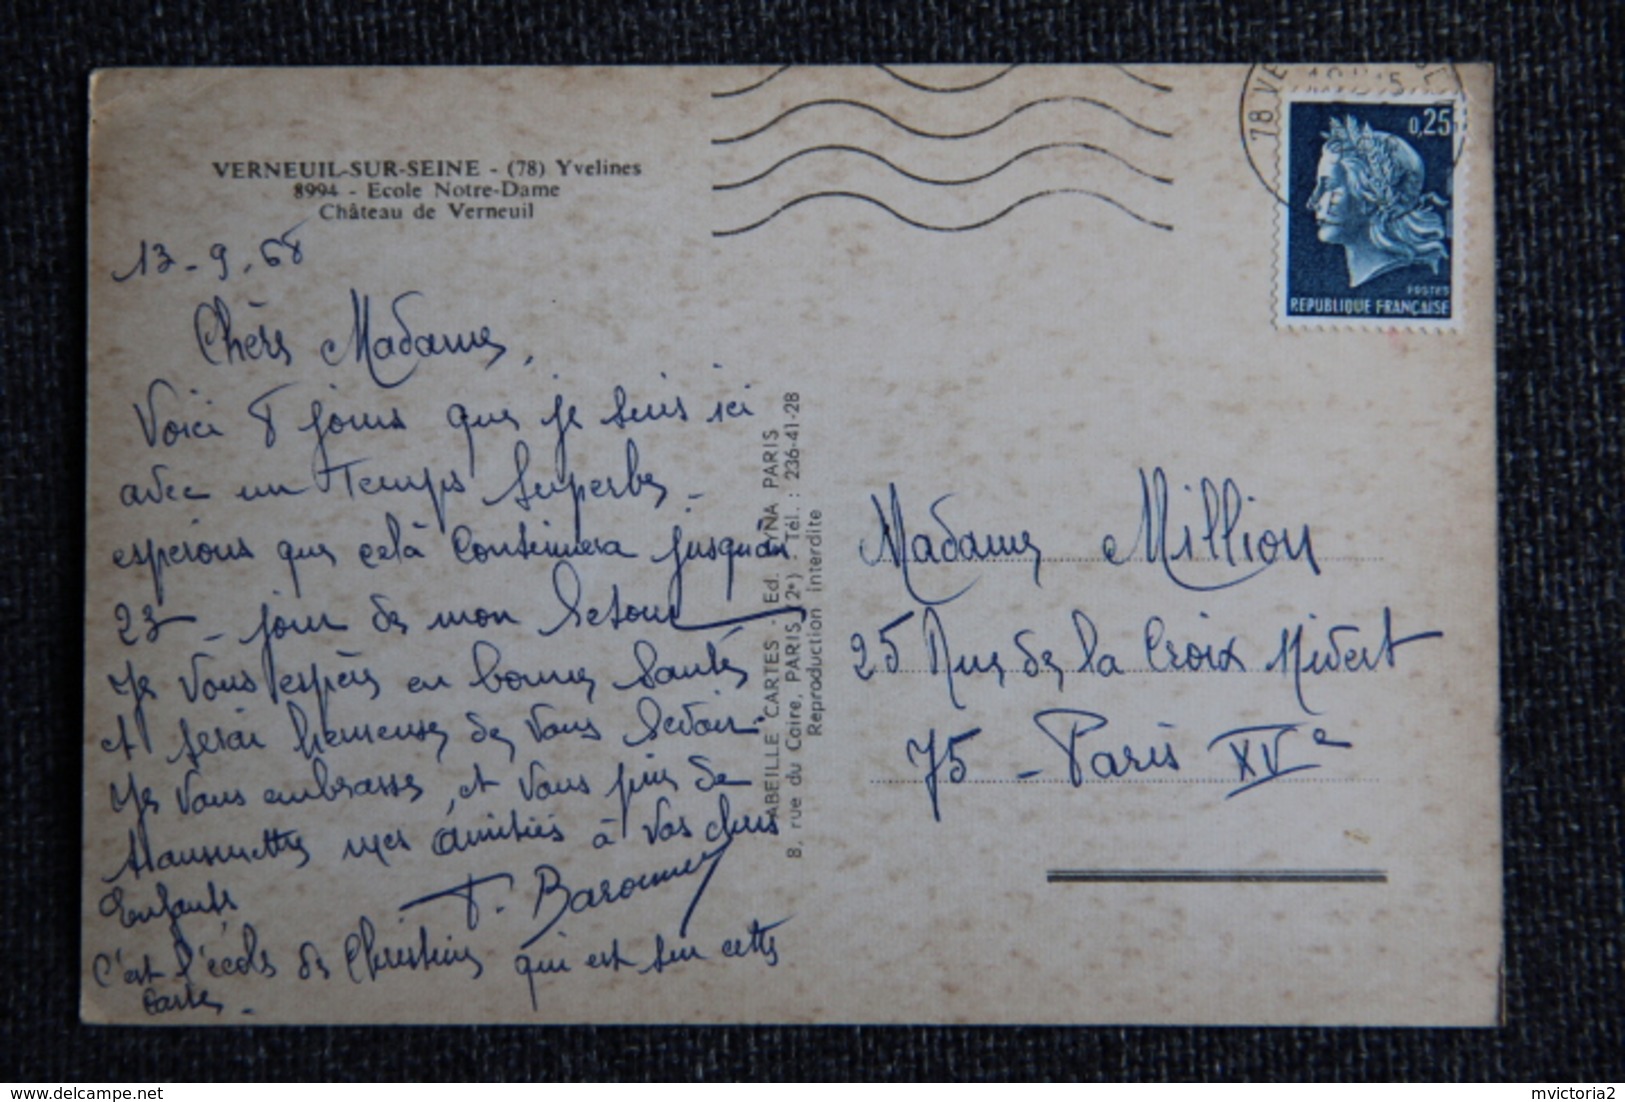 VERNEUIL-SUR-SEINE - (78) Yvelines
8994 - Ecole Notre-Dame
Château de Verneuil
13-9-68
Chère Madame,
Voici 8 jours que je suis ici
avec un Temps superbe -
espérons que celà continuera jusqu'au
23 - jour de mon retour
Je vous espère en bonne santé
et serai heureuse de vous revoir.
Je vous embrasse, et vous prie de
transmettre mes amitiés à vos chers
Enfants
C'est l'école de Christine qui est sur cette
carte -
ABEILLE CARTES - Ed. LYNA PARIS
8, rue du Caire, PARIS 2e) - Tél. : 236-41-28
Reproduction Interdite
78 VE
0,25
POSTES
REPUBLIQUE FRANÇAISE
Madame Million
25 Rue de la Croix Nivert
75 - Paris XVe
mvictoria2